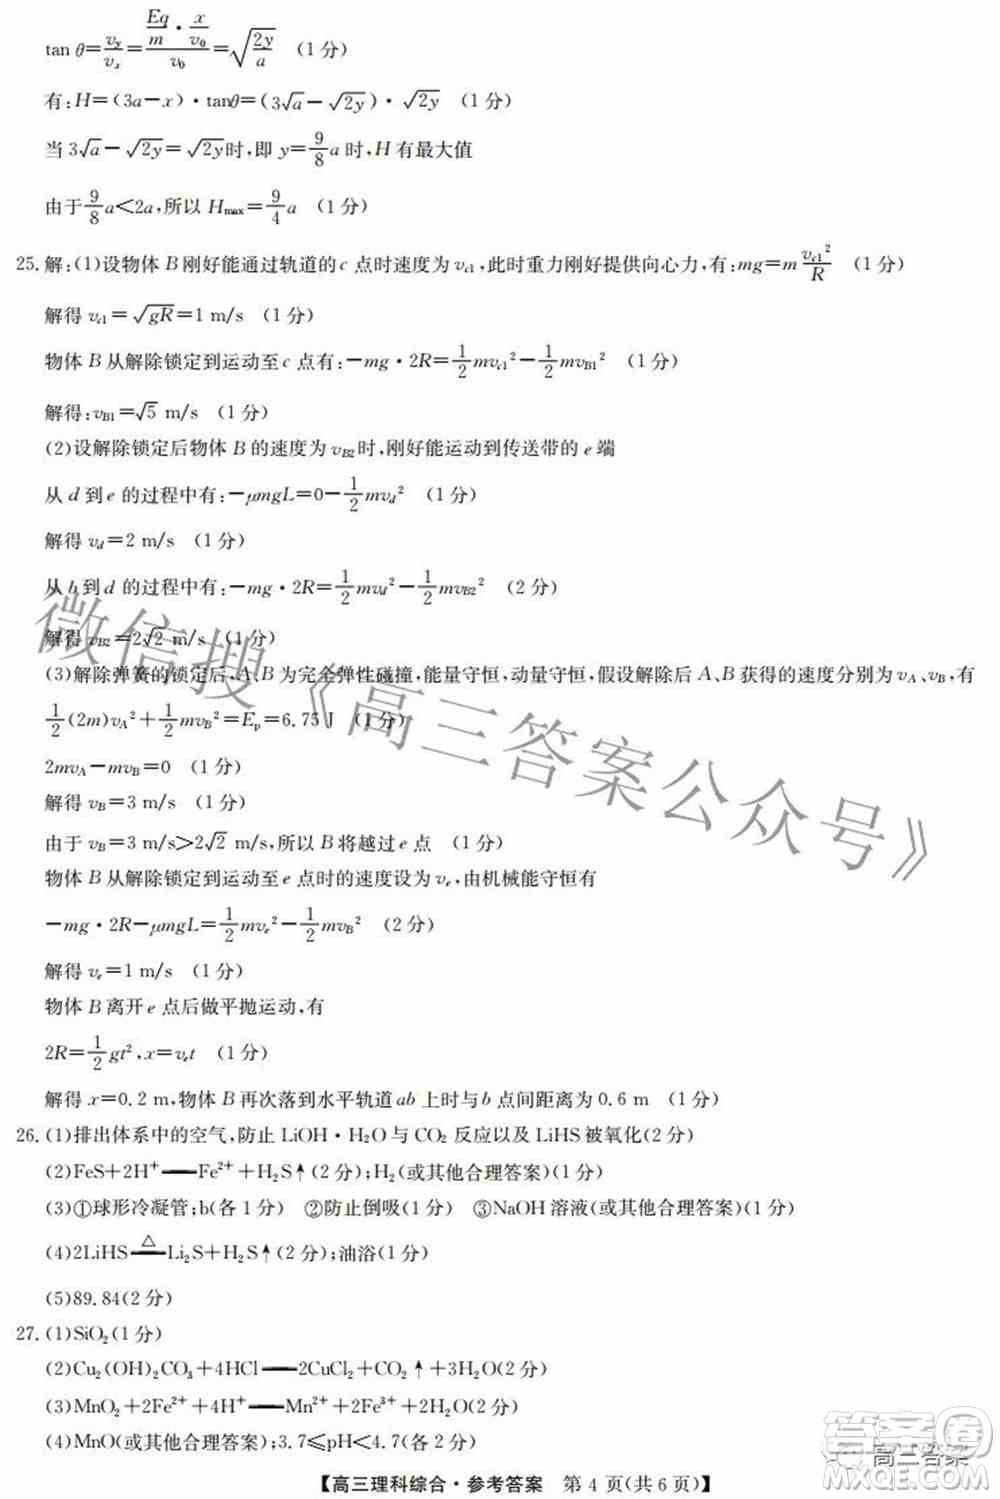 tan θ=v_y/v_x=(Eq/m·x/v₀)/v₀=√(2y/a) (1 分)
有:H=(3a−x)·tanθ=(3√a−√2y)·√2y (1 分)
当 3√a−√2y=√2y时,即 y=9/8 a 时,H 有最大值
由于9/8 a<2a,所以 H_max=9/4 a (1 分)
25.解:(1)设物体 B 刚好能通过轨道的 c 点时速度为 v_c1,此时重力刚好提供向心力,有:mg=m v_c1²/R (1 分)
解得 v_c1=√gR=1 m/s (1 分)
物体 B 从解除锁定到运动至 c 点有:−mg·2R=1/2 mv_c1²−1/2 mv_B1² (1 分)
解得:v_B1=√5 m/s (1 分)
(2)设解除锁定后物体 B 的速度为 v_B2时,刚好能运动到传送带的 e 端
从 d 到 e 的过程中有:−μmgL=0−1/2 mv_d² (1 分)
解得 v_d=2 m/s (1 分)
从 b 到 d 的过程中有:−mg·2R=1/2 mv_d²−1/2 mv_B2² (2 分)
解得 v_B2=2√2 m/s (1 分)
(3)解除弹簧的锁定后,A、B 为完全弹性碰撞,能量守恒,动量守恒,假设解除后 A、B 获得的速度分别为 v_A、v_B,有
1/2(2m)v_A²+1/2 mv_B²=E_p=6.75 J (1 分)
2mv_A−mv_B=0 (1 分)
解得 v_B=3 m/s (1 分)
由于 v_B=3 m/s>2√2 m/s,所以 B 将越过 e 点 (1 分)
物体 B 从解除锁定到运动至 e 点时的速度设为 v_e,由机械能守恒有
−mg·2R−μmgL=1/2 mv_e²−1/2 mv_B² (2 分)
解得 v_e=1 m/s (1 分)
物体 B 离开 e 点后做平抛运动,有
2R=1/2 gt²,x=v_e t (1 分)
解得 x=0.2 m,物体 B 再次落到水平轨道 ab 上时与 b 点间距离为 0.6 m (1 分)
26.(1)排出体系中的空气,防止 LiOH·H₂O 与 CO₂ 反应以及 LiHS 被氧化(2 分)
(2)FeS+2H⁺══Fe²⁺+H₂S↑(2 分);H₂(或其他合理答案)(2 分)
(3)①球形冷凝管;b(各 1 分) ②防止倒吸(2 分) ③NaOH 溶液(或其他合理答案)(2 分)
(4)2LiHS═△═Li₂S+H₂S↑(2 分);油浴(1 分)
(5)89.84(2 分)
27.(1)SiO₂(1 分)
(2)Cu₂(OH)₂CO₃+4HCl══2CuCl₂+CO₂↑+3H₂O(2 分)
(3)MnO₂+2Fe²⁺+4H⁺══Mn²⁺+2Fe³⁺+2H₂O(2 分)
(4)MnO(或其他合理答案);3.7≤pH<4.7(各 2 分)
【高三理科综合·参考答案 第 4 页(共 6 页)】
微信搜《高三答案公众号》
高三答案